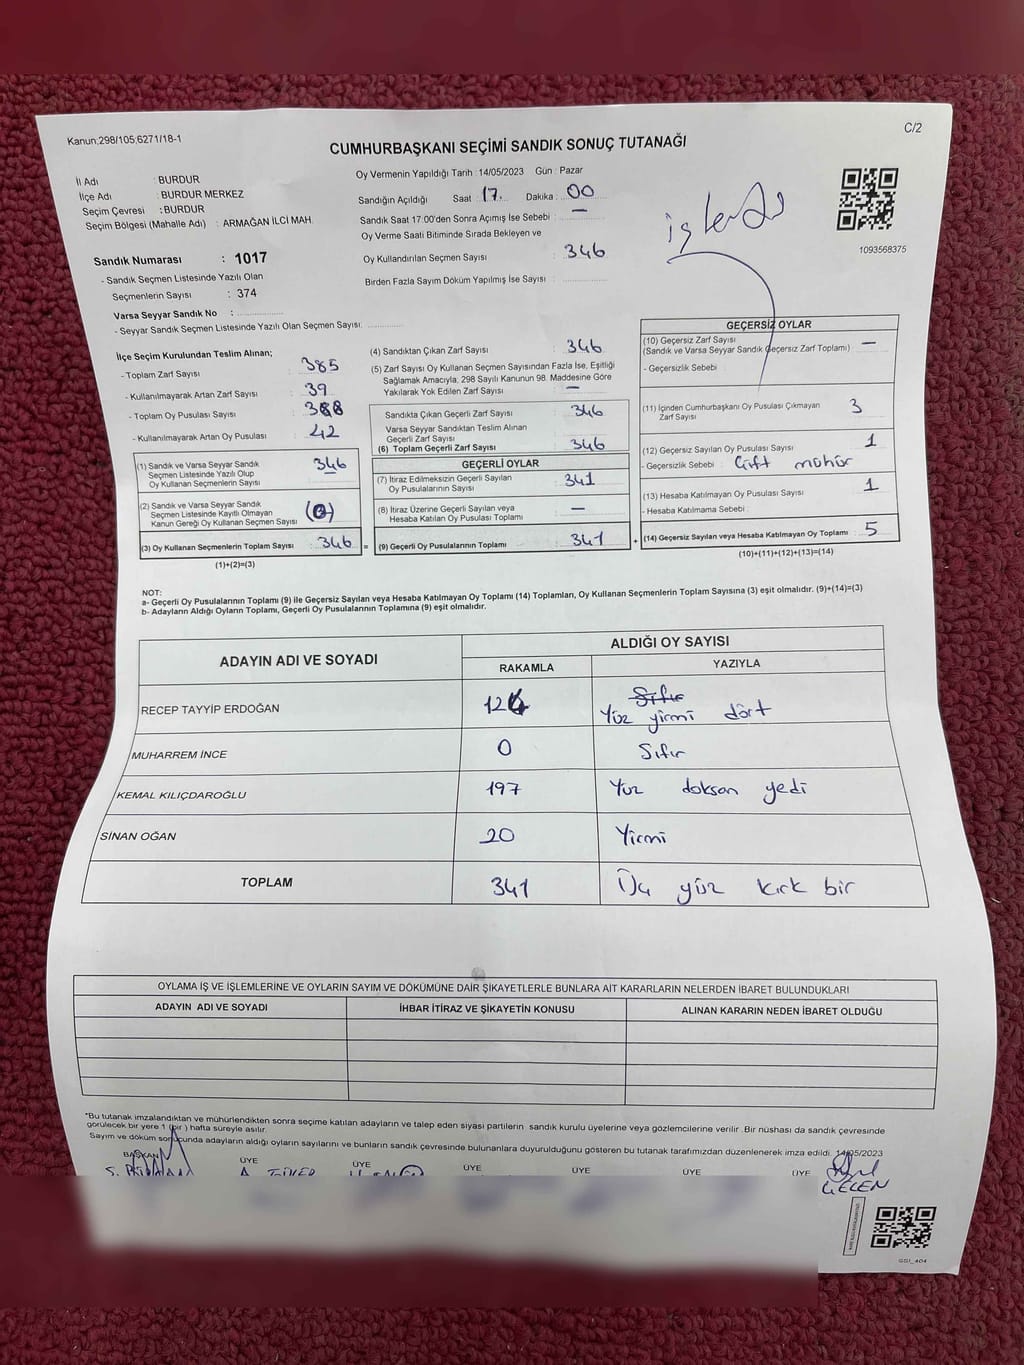 Kanun;298/105,6271/18-1
C/2
CUMHURBAŞKANI SEÇİMİ SANDIK SONUÇ TUTANAĞI
İl Adı : BURDUR
İlçe Adı : BURDUR MERKEZ
Seçim Çevresi : BURDUR
Seçim Bölgesi (Mahalle Adı) : ARMAĞAN İLCİ MAH.
Sandık Numarası : 1017
- Sandık Seçmen Listesinde Yazılı Olan
Seçmenlerin Sayısı : 374
Varsa Seyyar Sandık No :
- Seyyar Sandık Seçmen Listesinde Yazılı Olan Seçmen Sayısı:
Oy Vermenin Yapıldığı Tarih : 14/05/2023 Gün : Pazar
Sandığın Açıldığı Saat : 17. Dakika : 00
Sandık Saat 17:00'den Sonra Açımış İse Sebebi : —
Oy Verme Saati Bitiminde Sırada Bekleyen ve
Oy Kullandırılan Seçmen Sayısı : 346
Birden Fazla Sayım Döküm Yapılmış İse Sayısı :
işlendi
1093568375
İlçe Seçim Kurulundan Teslim Alınan;
- Toplam Zarf Sayısı : 385
- Kullanılmayarak Artan Zarf Sayısı : 39
- Toplam Oy Pusulası Sayısı : 388
- Kullanılmayarak Artan Oy Pusulası : 42
(1) Sandık ve Varsa Seyyar Sandık
Seçmen Listesinde Yazılı Olup
Oy Kullanan Seçmenlerin Sayısı : 346
(2) Sandık ve Varsa Seyyar Sandık
Seçmen Listesinde Kayıtlı Olmayan
Kanun Gereği Oy Kullanan Seçmen Sayısı : (0)
(3) Oy Kullanan Seçmenlerin Toplam Sayısı : 346
(1)+(2)=(3)
(4) Sandıktan Çıkan Zarf Sayısı : 346
(5) Zarf Sayısı Oy Kullanan Seçmen Sayısından Fazla İse, Eşitliği
Sağlamak Amacıyla, 298 Sayılı Kanunun 98. Maddesine Göre
Yakılarak Yok Edilen Zarf Sayısı : —
Sandıkta Çıkan Geçerli Zarf Sayısı : 346
Varsa Seyyar Sandıktan Teslim Alınan
Geçerli Zarf Sayısı
(6) Toplam Geçerli Zarf Sayısı : 346
GEÇERLİ OYLAR
(7) İtiraz Edilmeksizin Geçerli Sayılan
Oy Pusulalarının Sayısı : 341
(8) İtiraz Üzerine Geçerli Sayılan veya
Hesaba Katılan Oy Pusulası Toplamı : —
= (9) Geçerli Oy Pusulalarının Toplamı : 341
GEÇERSİZ OYLAR
(10) Geçersiz Zarf Sayısı
(Sandık ve Varsa Seyyar Sandık Geçersiz Zarf Toplamı) : —
- Geçersizlik Sebebi :
(11) İçinden Cumhurbaşkanı Oy Pusulası Çıkmayan
Zarf Sayısı : 3
(12) Geçersiz Sayılan Oy Pusulası Sayısı : 1
- Geçersizlik Sebebi : Çift mühür
(13) Hesaba Katılmayan Oy Pusulası Sayısı : 1
- Hesaba Katılmama Sebebi :
+ (14) Geçersiz Sayılan veya Hesaba Katılmayan Oy Toplamı : 5
(10)+(11)+(12)+(13)=(14)
NOT:
a- Geçerli Oy Pusulalarının Toplamı (9) ile Geçersiz Sayılan veya Hesaba Katılmayan Oy Toplamı (14) Toplamları, Oy Kullanan Seçmenlerin Toplam Sayısına (3) eşit olmalıdır. (9)+(14)=(3)
b- Adayların Aldığı Oyların Toplamı, Geçerli Oy Pusulalarının Toplamına (9) eşit olmalıdır.
ADAYIN ADI VE SOYADI
ALDIĞI OY SAYISI
RAKAMLA YAZIYLA
Sıfır
RECEP TAYYİP ERDOĞAN 124 Yüz yirmi dört
MUHARREM İNCE 0 Sıfır
KEMAL KILIÇDAROĞLU 197 Yuz doksan yedi
SİNAN OĞAN 20 Yirmi
TOPLAM 341 Üç yüz kırk bir
OYLAMA İŞ VE İŞLEMLERİNE VE OYLARIN SAYIM VE DÖKÜMÜNE DAİR ŞİKAYETLERLE BUNLARA AİT KARARLARIN NELERDEN İBARET BULUNDUKLARI
ADAYIN ADI VE SOYADI İHBAR İTİRAZ VE ŞİKAYETİN KONUSU ALINAN KARARIN NEDEN İBARET OLDUĞU
*Bu tutanak imzalandıktan ve mühürlendikten sonra seçime katılan adayların ve talep eden siyasi partilerin sandık kurulu üyelerine veya gözlemcilerine verilir. Bir nüshası da sandık çevresinde
görülecek bir yere 1 (bir) hafta süreyle asılır.
Sayım ve döküm sonucunda adayların aldığı oyların sayılarını ve bunların sandık çevresinde bulunanlara duyurulduğunu gösteren bu tutanak tarafımızdan düzenlenerek imza edildi. 14/05/2023
BAŞKAN ÜYE ÜYE ÜYE ÜYE ÜYE ÜYE
GSI_404